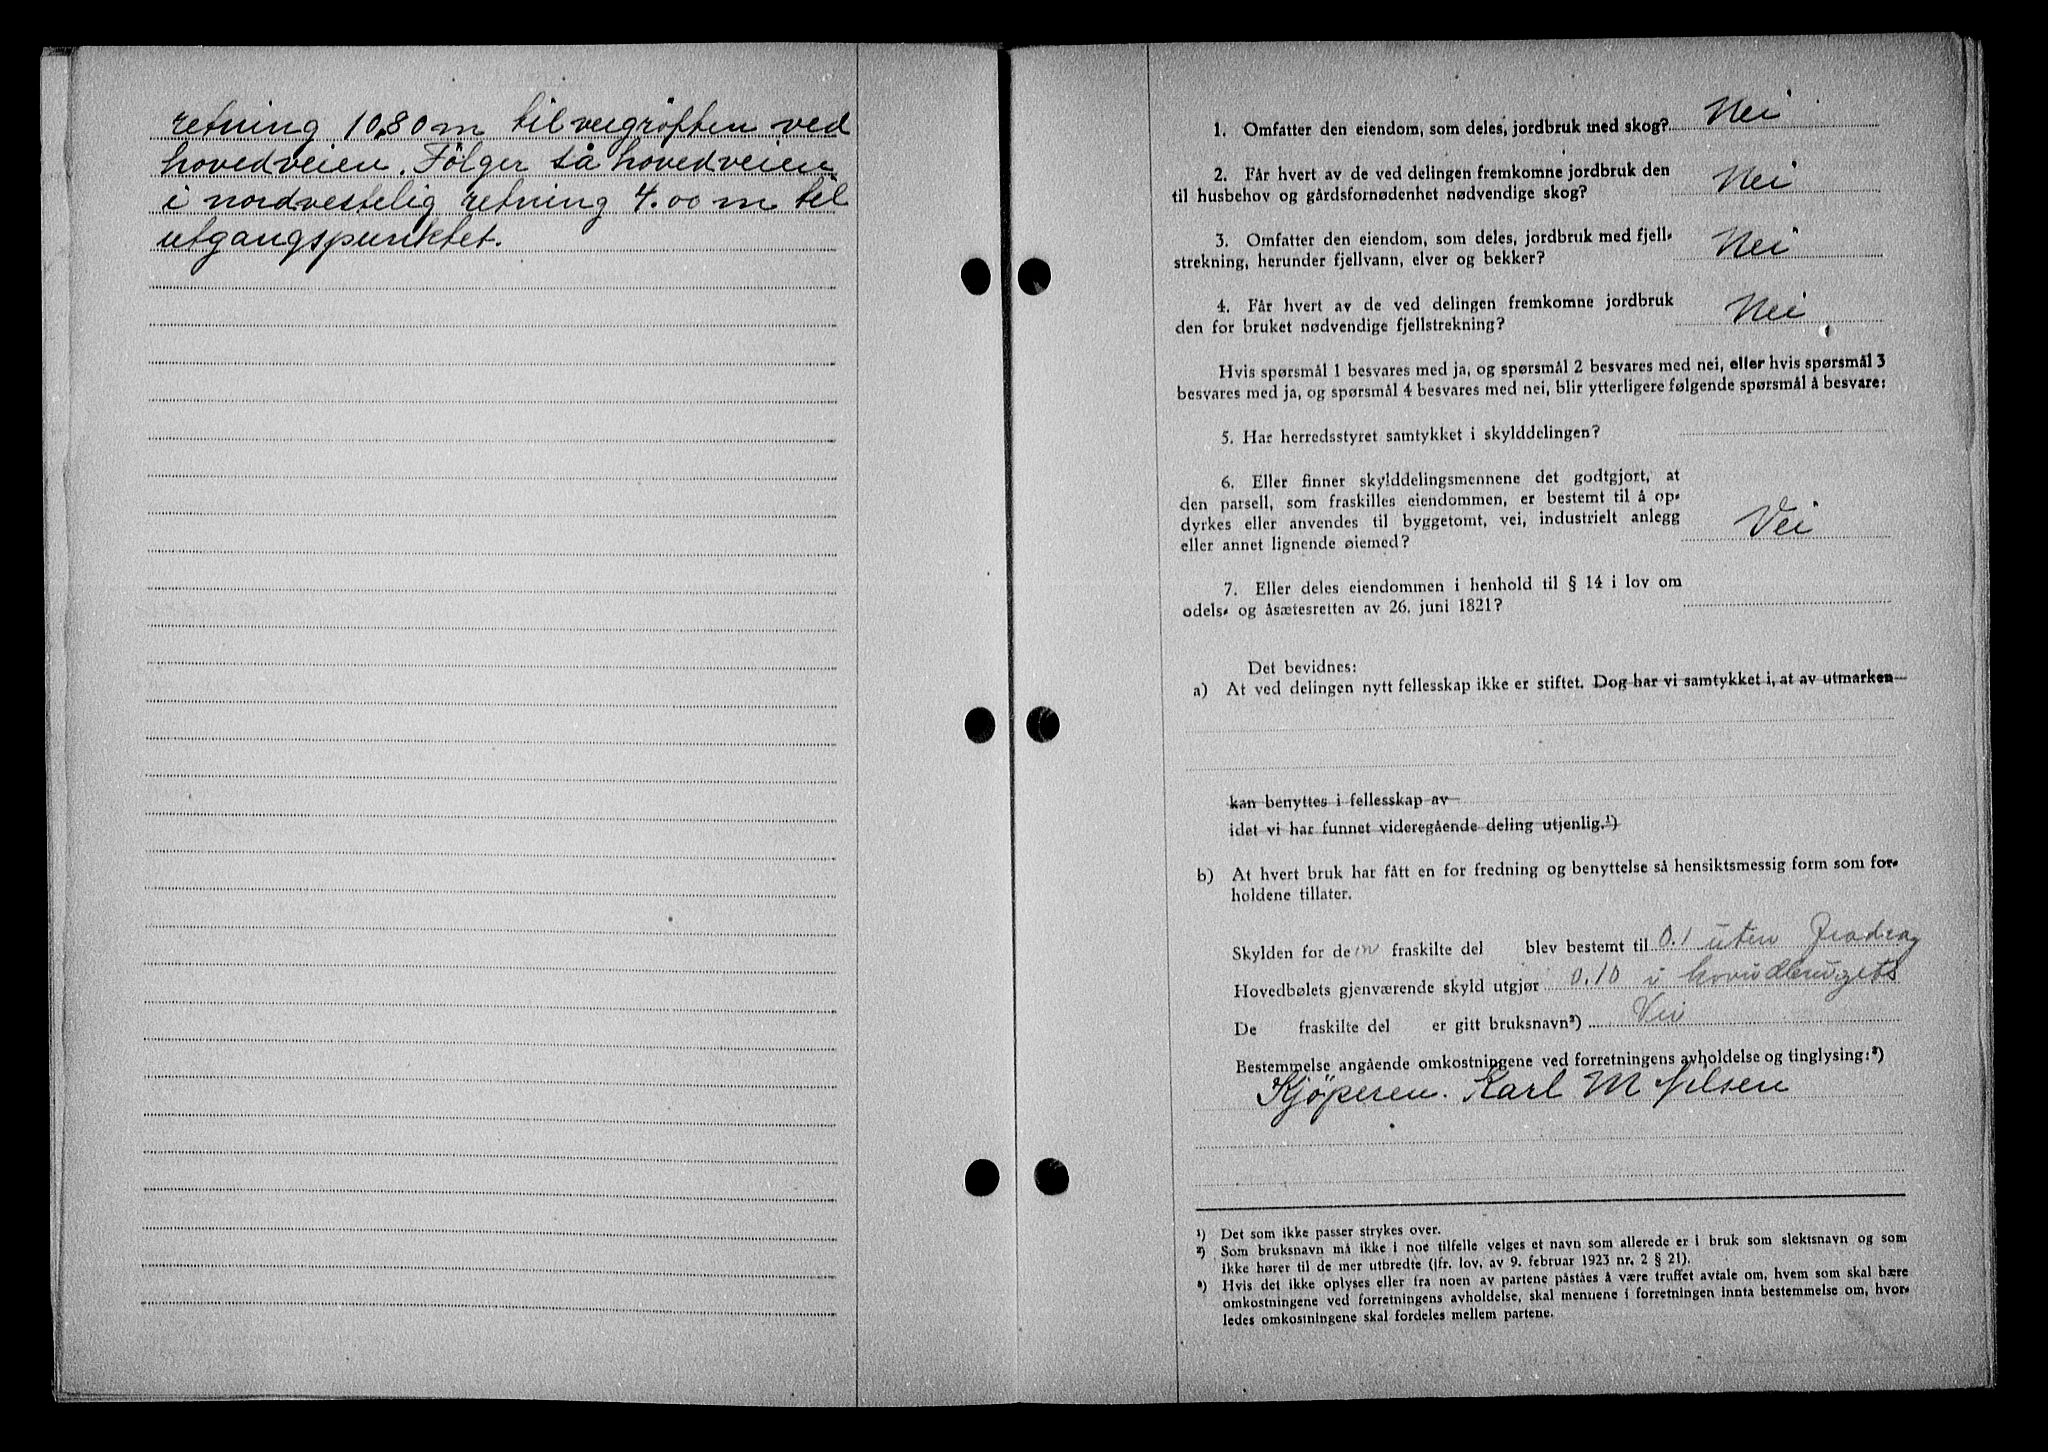 retning 10,80 m til veigrøften ved
hovedveien. Følger så hovedveien
i nordvestelig retning 4.00 m til
utgangspunktet.
1. Omfatter den eiendom, som deles, jordbruk med skog? Nei
2. Får hvert av de ved delingen fremkomne jordbruk den
til husbehov og gårdsfornødenhet nødvendige skog? Nei
3. Omfatter den eiendom, som deles, jordbruk med fjell-
strekning, herunder fjellvann, elver og bekker? Nei
4. Får hvert av de ved delingen fremkomne jordbruk
den for bruket nødvendige fjellstrekning? Nei
Hvis spørsmål 1 besvares med ja, og spørsmål 2 besvares med nei, eller hvis spørsmål 3
besvares med ja, og spørsmål 4 besvares med nei, blir ytterligere følgende spørsmål å besvare:
5. Har herredsstyret samtykket i skylddelingen?
6. Eller finner skylddelingsmennene det godtgjort, at
den parsell, som fraskilles eiendommen, er bestemt til å op-
dyrkes eller anvendes til byggetomt, vei, industrielt anlegg
eller annet lignende øiemed? Vei
7. Eller deles eiendommen i henhold til § 14 i lov om
odels- og åsætesretten av 26. juni 1821?
Det bevidnes:
a) At ved delingen nytt fellesskap ikke er stiftet. Dog har vi samtykket i, at av utmarken
kan benyttes i fellesskap av
idet vi har funnet videregående deling utjenlig.¹)
b) At hvert bruk har fått en for fredning og benyttelse så hensiktsmessig form som for-
holdene tillater.
Skylden for den fraskilte del blev bestemt til 0.1 uten fradrag
Hovedbølets gjenværende skyld utgjør 0.10 i hovudbrugets
De fraskilte del er gitt bruksnavn²) Vei
Bestemmelse angående omkostningene ved forretningens avholdelse og tinglysing:³)
Kjøperen. Karl M Nilsen
¹) Det som ikke passer strykes over.
²) Som bruksnavn må ikke i noe tilfelle velges et navn som allerede er i bruk som slektsnavn og som
ikke hører til de mer utbredte (jfr. lov, av 9. februar 1923 nr. 2 § 21).
³) Hvis det ikke oplyses eller fra noen av partene påståes å være truffet avtale om, hvem som skal bære
omkostningene ved forretningens avholdelse, skal mennene i forretningen innta bestemmelse om, hvor-
ledes omkostningene skal fordeles mellem partene.